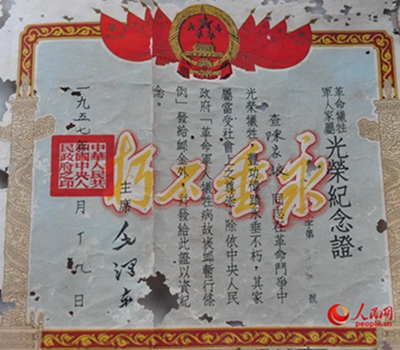 革命犧牲
軍人家屬
光榮紀念證
字第 號
查陳 同志在革命鬥爭中
光榮犧牲,豐功偉績永垂不朽,其家
屬當受社會上之尊敬。除依中央人民
政府「革命軍人犧牲病故褒卹暫行條
例」發給卹金外,並發給此證以資紀
念。
主席 毛澤東
一九五七年 月十九日
永垂不朽
中華人民共
和國中央人
民政府之印
人民网